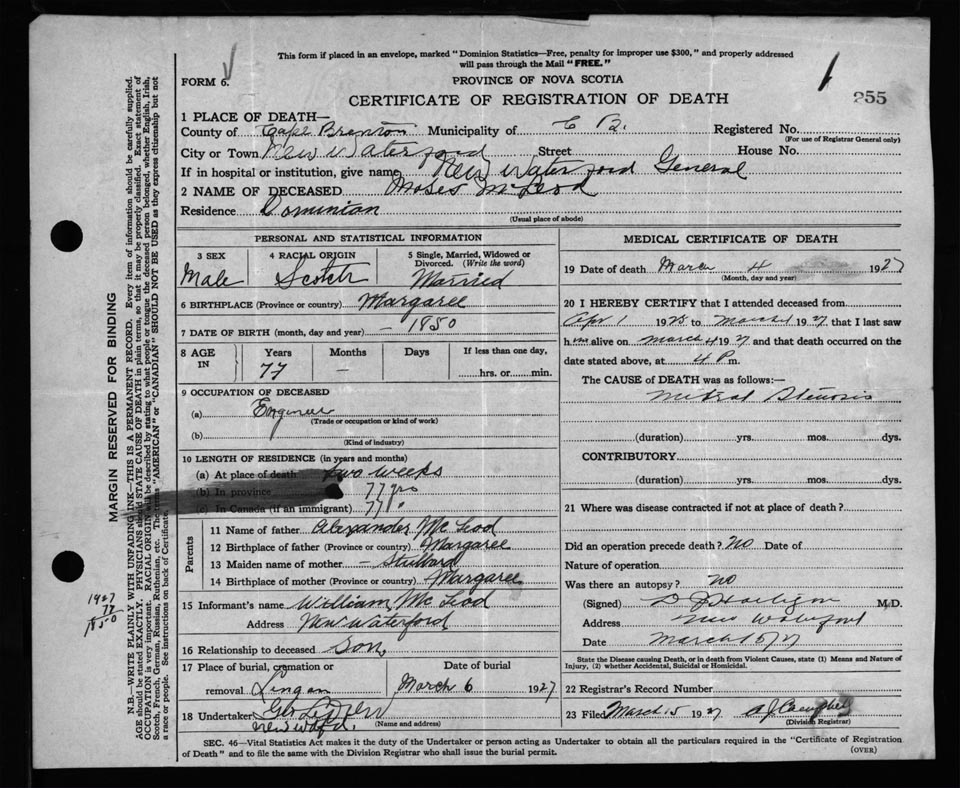 This form if placed in an envelope, marked "Dominion Statistics—Free, penalty for improper use $300," and properly addressed
will pass through the Mail "FREE."
FORM 6.
PROVINCE OF NOVA SCOTIA
CERTIFICATE OF REGISTRATION OF DEATH
255
1 PLACE OF DEATH—
County of Cape Breton Municipality of C B. Registered No.
(For use of Registrar General only)
City or Town New Waterford Street House No.
If in hospital or institution, give name New Waterford General
2 NAME OF DECEASED Moses McLeod
Residence Dominion
(Usual place of abode)
PERSONAL AND STATISTICAL INFORMATION
3 SEX
Male
4 RACIAL ORIGIN
Scotch
5 Single, Married, Widowed or
Divorced. (Write the word)
Married
6 BIRTHPLACE (Province or country) Margaree
7 DATE OF BIRTH (month, day and year) – 1850
8 AGE
IN
Years
77
Months
–
Days
If less than one day,
hrs. or min.
9 OCCUPATION OF DECEASED
(a) Engineer
(Trade or occupation or kind of work)
(b)
(Kind of industry)
10 LENGTH OF RESIDENCE (in years and months)
(a) At place of death two weeks
(b) In province 77 yrs
(c) In Canada (if an immigrant) 77 "
Parents
11 Name of father Alexander McLeod
12 Birthplace of father (Province or country) Margaree
13 Maiden name of mother –
14 Birthplace of mother (Province or country) Margaree
15 Informant's name William McLeod
Address New Waterford
16 Relationship to deceased Son
17 Place of burial, cremation or
removal Lingan
Date of burial
March 6 1927
18 Undertaker
(Name and address)
MEDICAL CERTIFICATE OF DEATH
19 Date of death March 4 1927
(Month, day and year)
20 I HEREBY CERTIFY that I attended deceased from
Apr 1 1925 to March 4 1927 that I last saw
him alive on March 4 1927 and that death occurred on the
date stated above, at 4 P m.
The CAUSE of DEATH was as follows:—
Mitral Stenosis
(duration) yrs. mos. dys.
CONTRIBUTORY
(duration) yrs. mos. dys.
21 Where was disease contracted if not at place of death?
Did an operation precede death? No Date of
Nature of operation
Was there an autopsy? no
(Signed) M.D.
Address New Waterford
Date March 5/27
State the Disease causing Death, or in death from Violent Causes, state (1) Means and Nature of
Injury, (2) whether Accidental, Suicidal or Homicidal.
22 Registrar's Record Number
23 Filed March 5 1927 A J Campbell
(Division Registrar)
SEC. 46—Vital Statistics Act makes it the duty of the Undertaker or person acting as Undertaker to obtain all the particulars required in the "Certificate of Registration
of Death" and to file the same with the Division Registrar who shall issue the burial permit.
(OVER)
MARGIN RESERVED FOR BINDING
N.B.—WRITE PLAINLY, WITH UNFADING INK—THIS IS A PERMANENT RECORD. Every item of information should be carefully supplied.
AGE should be stated EXACTLY. PHYSICIANS should STATE CAUSE OF DEATH in plain terms, so that it may be properly classified. Exact statement of
OCCUPATION is very important. RACIAL ORIGIN will be described by stating to what people or tongue the deceased person belonged, whether English, Irish,
Scotch, French, German, Russian, Ruthenian, etc. The terms "AMERICAN" or "CANADIAN" SHOULD NOT BE USED as they express citizenship but not
a race or people. See instructions on back of Certificate.
1927
77
1850